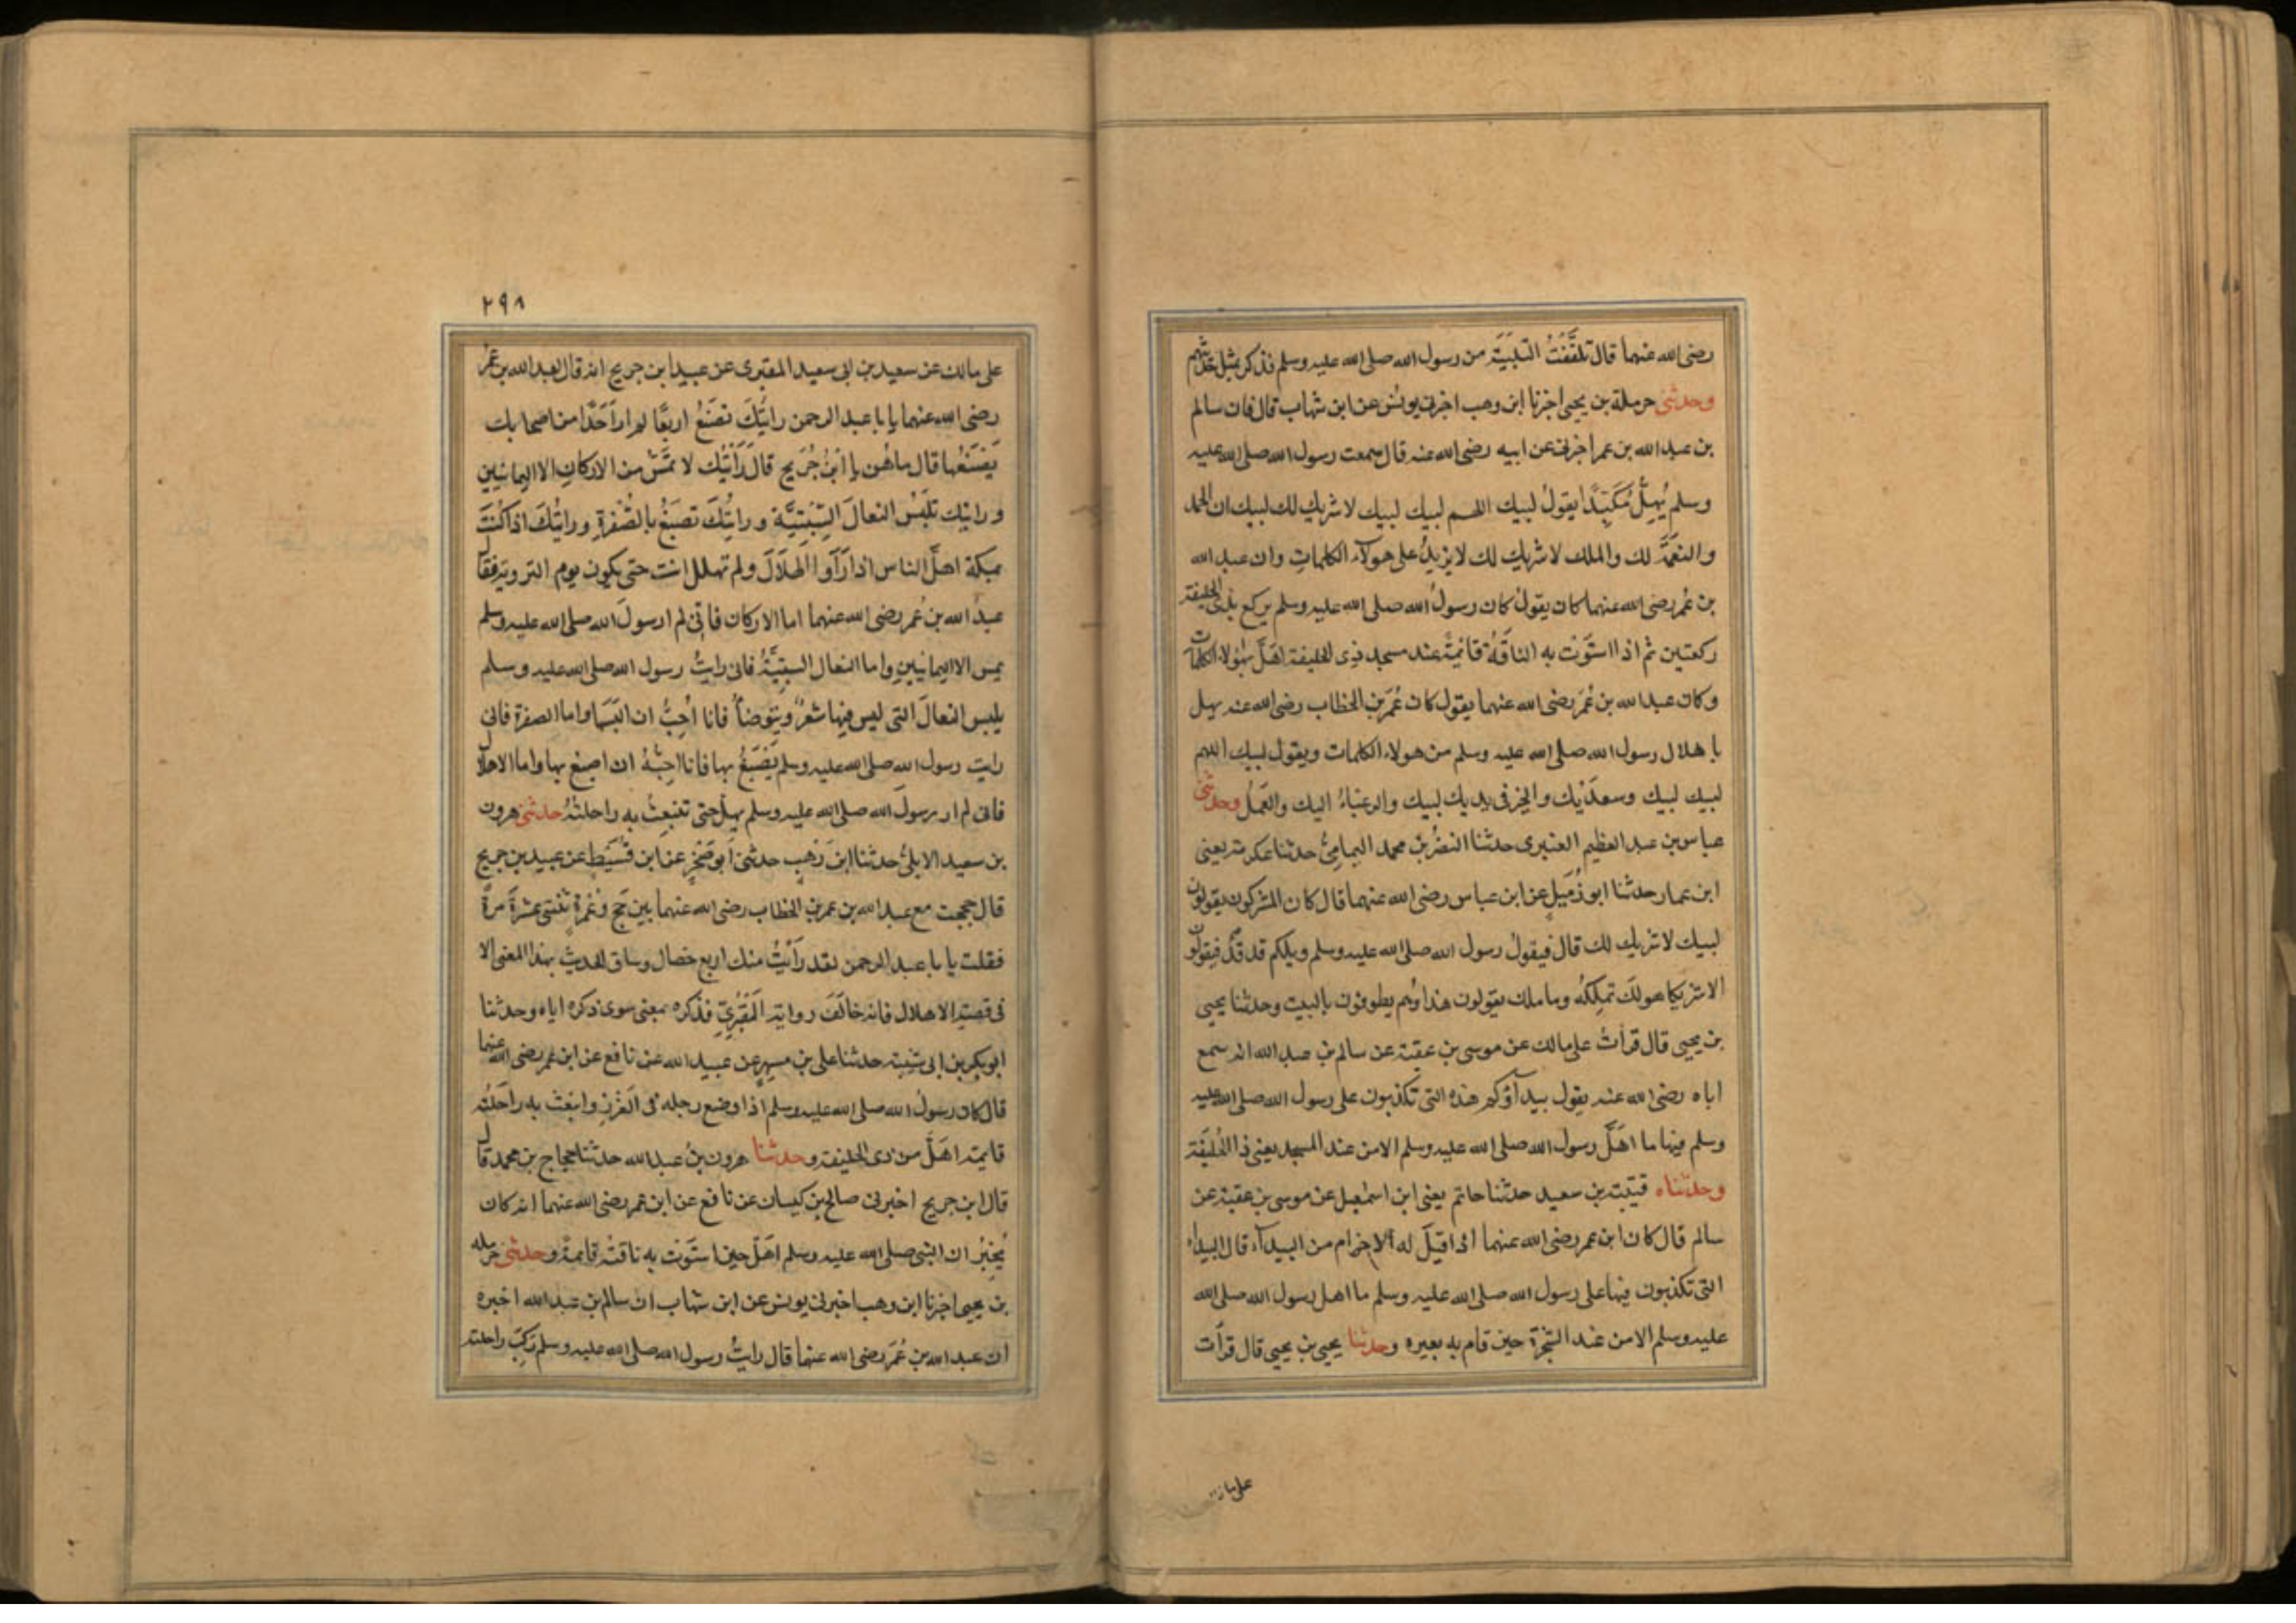 رضى الله عنهما قال تلقفت التلبية من رسول الله صلى الله عليه وسلم فذكر بمثل حديثهم
وحدثنى حرملة بن يحيى اخبرنا ابن وهب اخبرنى يونس عن ابن شهاب قال فان سالم
بن عبد الله بن عمر اخبرنى عن ابيه رضى الله عنه قال سمعت رسول الله صلى الله عليه
وسلم يُهِلُّ مُلَبِّدًا يقولُ لبيك اللهم لبيك لبيك لا شريك لك لبيك ان الحمد
والنعمَةَ لك والملك لا شريك لك لا يزيدُ على هولآء الكلمات وان عبد الله
بن عُمر رضى الله عنهما كان يقولُ كان رسولُ الله صلى الله عليه وسلم يركع بذى الحليفة
ركعتين ثم اذا استَوَت به الناقَةُ قائمةً عند مسجد ذى الحليفة اهَلَّ بهؤلاء الكلمات
وكان عبد الله بن عُمَر رضى الله عنهما يقول كان عُمَر بن الخطاب رضى الله عنه يهل
باهلال رسول الله صلى الله عليه وسلم من هولاء الكلمات ويقول لبيك اللهم
لبيك لبيك وسعدَيْك والخير فى يديك لبيك والرغباءُ اليك والعَمَلُ وحدثنى
عباس بن عبد العظيم العنبرى حدثنا النضرُ بن محمد اليمامِىُّ حدثنا عكرمة يعنى
ابن عمار حدثنا ابو زُمَيلٍ عن ابن عباس رضى الله عنهما قال كان المشركون يقولون
لبيك لا شريك لك قال فيقولُ رسول الله صلى الله عليه وسلم ويلكم قد قَدٍ فيقولون
الا شريكا هو لكَ تملِكُه وما ملك يقولون هذا وُهم يطوفون بالبيت وحدثنا يحيى
بن يحيى قال قرأتُ على مالك عن موسى بن عقبة عن سالم بن عبد الله انه سمع
اباه رضى الله عنه يقول بيدآؤكم هذه التى تكذبون على رسول الله صلى الله عليه
وسلم فيها ما اهَلَّ رسول الله صلى الله عليه وسلم الا من عند المسجد يعنى ذا الحُلَيفَة
وحدثناه قتيبة بن سعيد حدثنا حاتم يعنى ابن اسمعيل عن موسى بن عقبة عن
سالم قال كان ابن عمر رضى الله عنهما اذا قيلَ له الاحرام من البيدآء قال البيداء
التى تكذبون فيها على رسول الله صلى الله عليه وسلم ما اهل رسول الله صلى الله
عليه وسلم الا من عند الشجرة حين قام به بعيره وحدثنا يحيى بن يحيى قال قرأت
٢٩٨
على مالك عن سعيد بن ابى سعيد المقبرى عن عبيد ابن جريج انه قال لعبد الله بن عُمَر
رضى الله عنهما يا با عبد الرحمن رايتُكَ تصَنَعُ اربعًا لم ار اَحَدًا من اصحابك
يَصْنَعُها قال ما هُن يا ابنَ جُرَيج قال رَاَيْتُك لا تمَسّ من الاركانِ الا اليمانيين
ورايتك تلبَسُ النعالَ السِّبْتِيَّة ورايتُكَ تصبَغُ بالصُّفرةِ ورايتُكَ اذا كُنتَ
بمكة اهلَّ الناس اذا رَأَوا الهلاَلَ ولم تهلل انت حتى يكون يوم التروية فقال
عبدُ الله بن عُمر رضى الله عنهما اما الاركان فانى لم ار رسولَ الله صلى الله عليه وسلم
يمس الا اليمانيين واما النعال السبتِيَّةُ فانى رايتُ رسول الله صلى الله عليه وسلم
يلبس النعالَ التى ليس فيها شعرٌ ويتوضأُ فانا اُحِبُّ ان البَسَها واما الصفرة فانى
رايت رسول الله صلى الله عليه وسلم يَصْبَغُ بها فانا احِبُّ ان اصبغ بها واما الاهلال
فانى لم ار رسولَ الله صلى الله عليه وسلم يهلّ حتى تنبعِثُ به راحلتُهُ حدثنى هرون
بن سعيد الايلىُّ حدثنا ابن وَهبٍ حدثنى ابو صَخرٍ عن ابن قُسَيطٍ عن عبيد بن جريج
قال حججت مع عبد الله بن عمر بن الخطاب رضى الله عنهما بين حَج وعُمرة ثنتى عشرةَ مرةً
فقلت يا با عبد الرحمن لقد رأيْتُ منك اربع خصال وساق الحديثَ بهذا المعنى الا
فى قصة الاهلال فانه خالَفَ رواية المَقبُرىِّ فذكره بمعنى سوى ذكره اياه وحدثنا
ابو بكر بن ابى شيبة حدثنا على بن مسهر عن عبيد الله عن نافع عن ابن عمر رضى الله عنهما
قال كان رسولُ الله صلى الله عليه وسلم اذا وضع رجله فى الغَرزِ وانبَعَثَ به راحَلتُه
قايمةً اهَلَّ من ذى الحليفة وحدثنا هرون بنُ عبد الله حدثنا حجاج بن محمد قال
قال ابن جريج اخبرنى صالح بن كيسان عن نافع عن ابن عمر رضى الله عنهما انه كان
يُخبِرُ ان النبى صلى الله عليه وسلم اهَلّ حين استَوَت به ناقتُه قايمةً وحدثنى حرمله
بن يحيى اخبرنا ابن وهب اخبرنى يونس عن ابن شهاب ان سالم بن عبد الله اخبره
ان عبد الله بن عُمَر رضى الله عنهما قال رايتُ رسول الله صلى الله عليه وسلم رَكِبَ راحلته